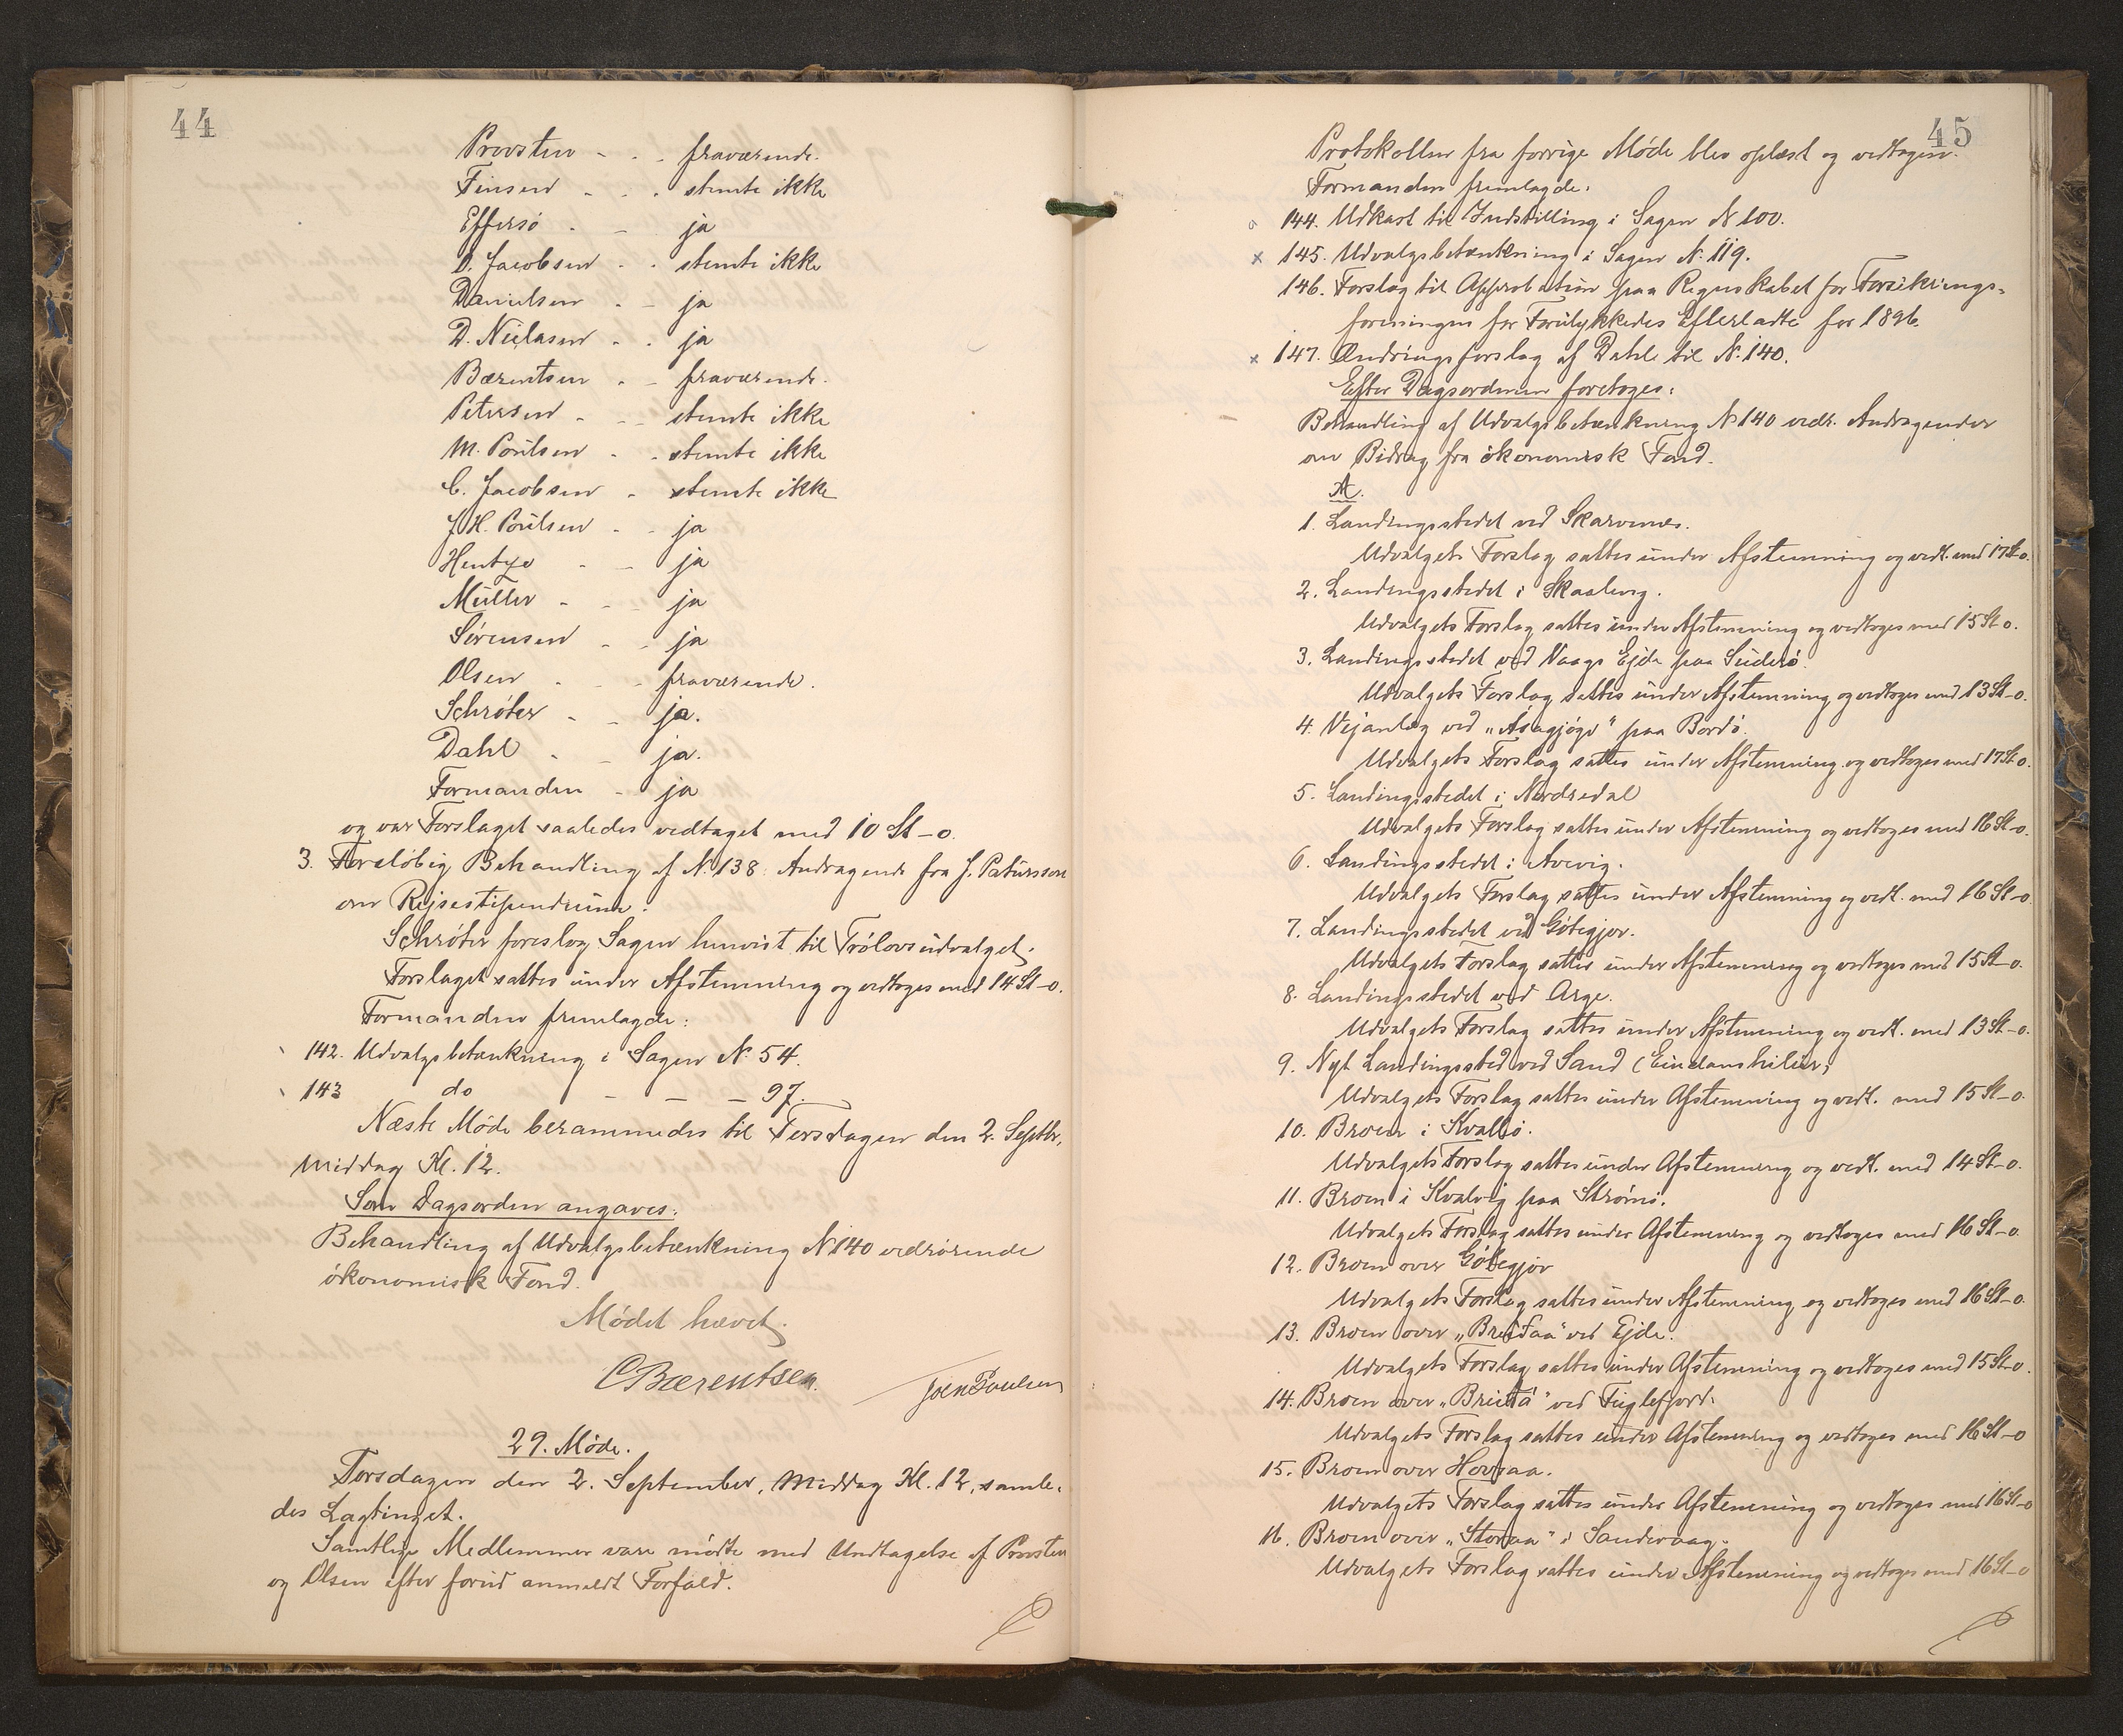 44
Provsten - - - fraværende.
Finsen - - - stemte ikke
Effersö - - ja
D. Jacobsen - - stemte ikke
Danielsen - - ja
D. Niclasen - - ja
Bærentsen - - fraværende.
Petersen - - - stemte ikke
M. Poulsen - - stemte ikke
C. Jacobsen - stemte ikke
J. H. Poulsen - - ja
Hentze - - ja
Müller - - ja
Sörensen - - ja
Olsen - - - fraværende.
Schröter - - ja.
Dahl - - ja.
Formanden - ja
og var Forslaget saaledes vedtaget med 10 St - 0.
3. Foreløbig Behandling af N. 138. Andragende fra J. Patursson
om Rejsestipendium.
Schröter foreslog Sagen henvist til Trólovsudvalget.
Forslaget sattes under Afstemning og vedtoges med 14 St - 0.
Formanden fremlagde:
142. Udvalgsbetænkning i Sagen N. 54.
143 do - - - 97.
Næste Møde berammedes til Torsdagen den 2. Septbr,
Middag Kl. 12.
Som Dagsorden angaves:
Behandling af Udvalgsbetænkning N 140 vedrørende
økonomisk Fond.
Mødet hævet.
C Bærentsen. Joen Poulsen
29. Møde.
Torsdagen den 2. September, Middag Kl. 12, samle-
des Lagtinget.
Samtlige Medlemmer vare mødte med Undtagelse af Provsten
og Olsen efter forud anmeldt Forfald.
45
Protokollen fra forrige Møde blev oplæst og vedtagen.
Formanden fremlagde:
144. Udkast til Indstilling i Sagen N 100.
x 145. Udvalgsbetænkning i Sagen N. 119.
146. Forslag til Approbation paa Regnskabet for Forsikrings-
foreningen for Forulykkedes Efterladte for 1896.
x 147. Ændringsforslag af Dahl til N. 140.
Efter Dagsordenen foretoges:
Behandling af Udvalgsbetænkning N 140 vedr. Andragender
om Bidrag fra økonomisk Fond.
A.
1. Landingsstedet ved Skarvenes.
Udvalgets Forslag sattes under Afstemning og vedt. med 17 St - 0.
2. Landingsstedet i Skaalevig.
Udvalgets Forslag sattes under Afstemning og vedtoges med 15 St - 0.
3. Landingsstedet ved Vaags Ejde paa Suderö.
Udvalgets Forslag sattes under Afstemning og vedtoges med 13 St - 0.
4. Vejanlæg ved „Ásagjógv" paa Bordö.
Udvalgets Forslag sattes under Afstemning og vedtoges med 17 St - 0.
5. Landingsstedet i Nordredal
Udvalgets Forslag sattes under Afstemning og vedtoges med 16 St - 0.
6. Landingsstedet i Avevig.
Udvalgets Forslag sattes under Afstemning og vedt. med 16 St - 0.
7. Landingsstedet ved Götegjov.
Udvalgets Forslag sattes under Afstemning og vedtoges med 15 St - 0.
8. Landingsstedet ved Arge.
Udvalgets Forslag sattes under Afstemning og vedt. med 13 St - 0.
9. Nyt Landingssted ved Sand
Udvalgets Forslag sattes under Afstemning og vedt. med 15 St - 0.
10. Broen i Kvalbö.
Udvalgets Forslag sattes under Afstemning og vedt. med 14 St - 0.
11. Broen i Kvalvig paa Strömö.
Udvalgets Forslag sattes under Afstemning og vedtoges med 16 St - 0.
12. Broen over Götegjov
Udvalgets Forslag sattes under Afstemning og vedtoges med 16 St - 0.
13. Broen over „Breidaa" ved Ejde.
Udvalgets Forslag sattes under Afstemning og vedtoges med 15 St - 0.
14. Broen over „Breidá" ved Fuglefjord.
Udvalgets Forslag sattes under Afstemning og vedtoges med 16 St - 0
15. Broen over Hovsaa.
Udvalgets Forslag sattes under Afstemning og vedtoges med 16 St - 0
16. Broen over „Storaa" i Sandevaag.
Udvalgets Forslag sattes under Afstemning og vedtoges med 16 St - 0